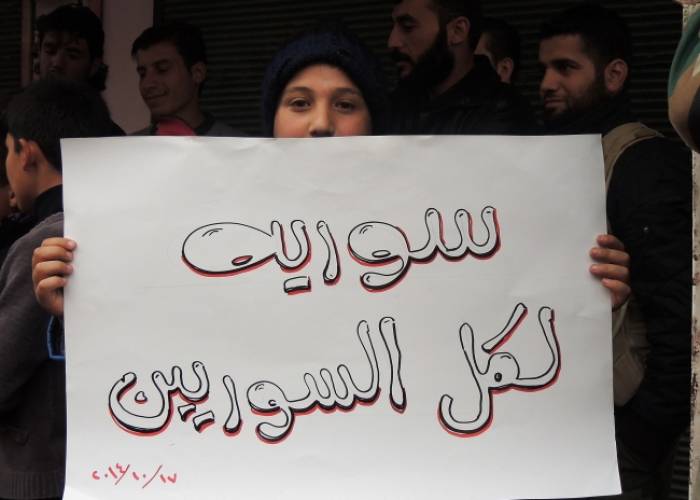 سورية
لكل السوريين
٢٠١٤/١٠/١٧